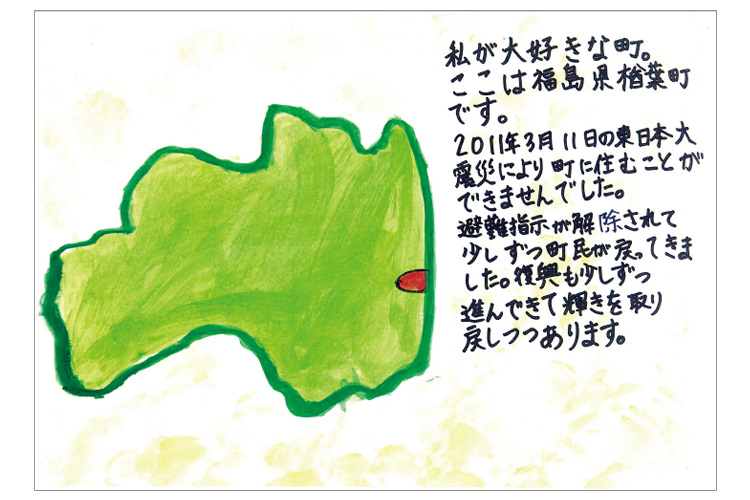 私が大好きな町。
ここは福島県楢葉町
です。
2011年3月11日の東日本大
震災により町に住むことが
できませんでした。
避難指示が解除されて
少しずつ町民が戻ってきま
した。復興も少しずつ
進んできて輝きを取り
戻しつつあります。